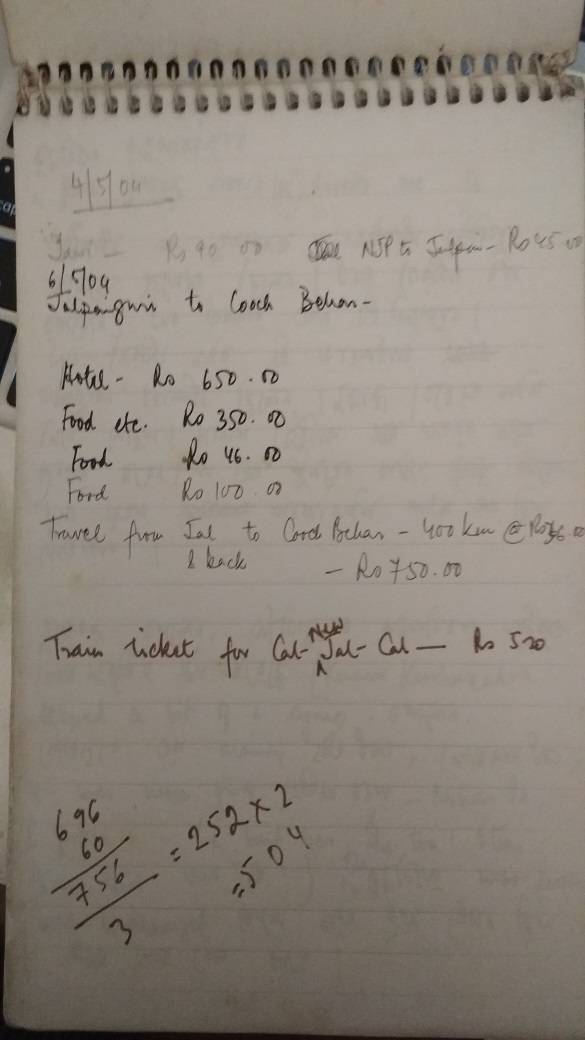 4/5/04
Rs 90 00 NJP to Jalpai - Rs 45 00
6/5/04
Jalpaiguri to Cooch Behar -
Hotel - Rs 650.00
Food etc. Rs 350.00
Food Rs 46.00
Food Rs 100.00
Travel from Jal to Cooch Behar - 400 km @
& back - Rs 750.00
New
Train ticket for Cal - Jal - Cal — Rs 520
696
60
756 = 252 x 2
3 = 504